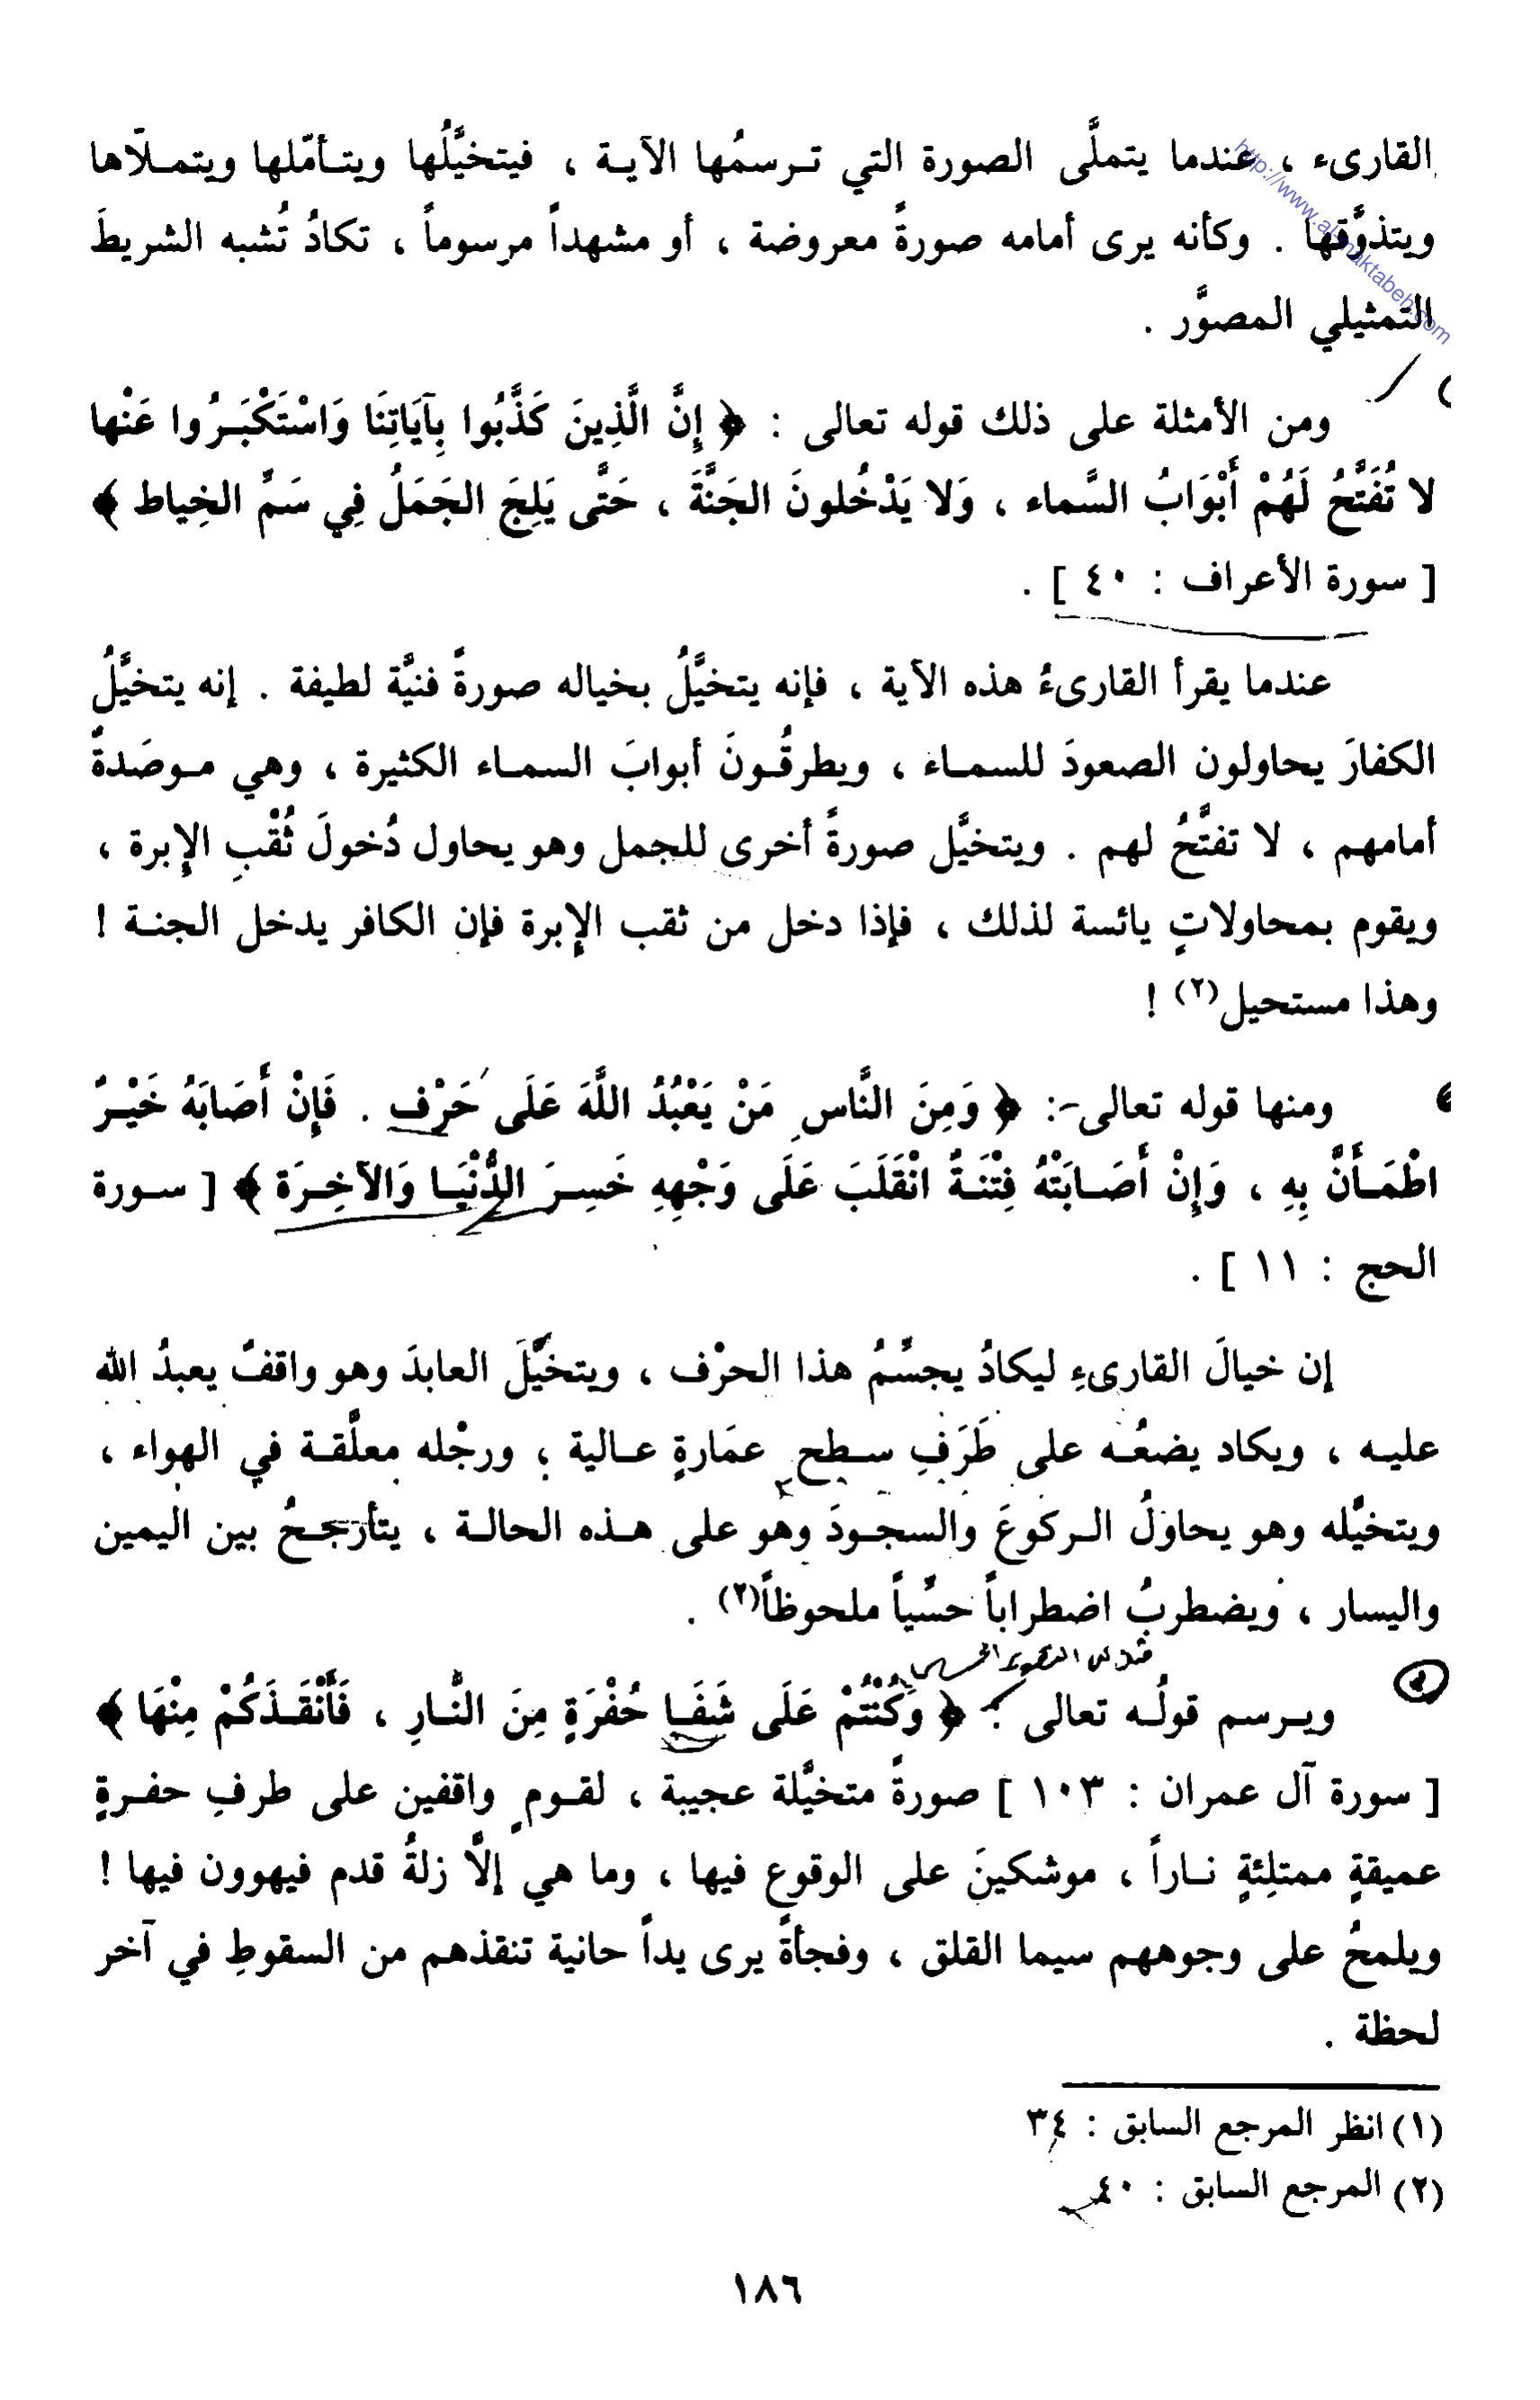 القارىء ، عندما يتملَّى الصورة التي تـرسمُها الآيـة ، فيتخيَّلُها ويتـأمّلها ويتمـلّاها
ويتذوَّقها . وكأنه يرى أمامه صورةً معروضة ، أو مشهداً مرسوماً ، تكادُ تُشبه الشريطَ
التمثيلي المصوَّر .
http://www.al-maktabeh.com
ومن الأمثلة على ذلك قوله تعالى : ﴿ إِنَّ الَّذِينَ كَذَّبُوا بِآيَاتِنَا وَاسْتَكْبَـرُوا عَنْها
لا تُفَتَّحُ لَهُمْ أَبْوَابُ السَّماء ، وَلا يَدْخُلونَ الجَنَّةَ ، حَتَّى يَلِجَ الجَمَلُ فِي سَمِّ الخِياط ﴾
[ سورة الأعراف : ٤٠ ] .
عندما يقرأ القارىءُ هذه الآية ، فإنه يتخيَّلُ بخياله صورةً فنيَّة لطيفة . إنه يتخيَّلُ
الكفارَ يحاولون الصعودَ للسمـاء ، ويطرقُـونَ أبوابَ السمـاء الكثيرة ، وهي مـوصَدةً
أمامهم ، لا تفتَّحُ لهم . ويتخيَّل صورةً أخرى للجمل وهو يحاول دُخولَ ثُقْبِ الإِبرة ،
ويقوم بمحاولاتٍ يائسة لذلك ، فإذا دخل من ثقب الإِبرة فإن الكافر يدخل الجنـة !
وهذا مستحيل(٢) !
ومنها قوله تعالى : ﴿ وَمِنَ النَّاسِ مَنْ يَعْبُدُ اللَّهَ عَلَى حَرْفٍ . فَإِنْ أَصَابَهُ خَيْـرٌ
اطْمَـأَنَّ بِهِ ، وَإِنْ أَصَـابَتْهُ فِتْنَـةٌ انْقَلَبَ عَلَى وَجْهِهِ خَسِـرَ الدُّنْيَـا وَالآخِـرَة ﴾ [ سـورة
الحج : ١١ ] .
إن خيالَ القارىءِ ليكادُ يجسِّمُ هذا الحرْف ، ويتخيَّلَ العابدَ وهو واقفٌ يعبدُ الله
عليـه ، ويكاد يضعُـه على طَرَفِ سـطحِ عمَارةٍ عـالية ، ورجْله معلَّقـة في الهواء ،
ويتخيَّله وهو يحاولُ الـركوعَ والسجـودَ وهو على هـذه الحالـة ، يتأرجـحُ بين اليمين
واليسار ، ويضطربُ اضطراباً حسِّياً ملحوظاً(٢) .
ويـرسم قولُـه تعالى : ﴿ وَكُنْتُمْ عَلَى شَفَـا حُفْرَةٍ مِنَ النَّـارِ ، فَأَنْقَـذَكُمْ مِنْهَا ﴾
[ سورة آل عمران : ١٠٣ ] صورةً متخيَّلة عجيبة ، لقـومٍ واقفين على طرفِ حفـرةٍ
عميقةٍ ممتلِئةٍ نـاراً ، موشكينَ على الوقوعِ فيها ، وما هي إلَّا زلةُ قدم فيهوون فيها !
ويلمحُ على وجوههم سيما القلق ، وفجأةً يرى يداً حانية تنقذهم من السقوطِ في آخر
لحظة .
(١) انظر المرجع السابق : ٣٤
(٢) المرجع السابق : ٤٠
١٨٦